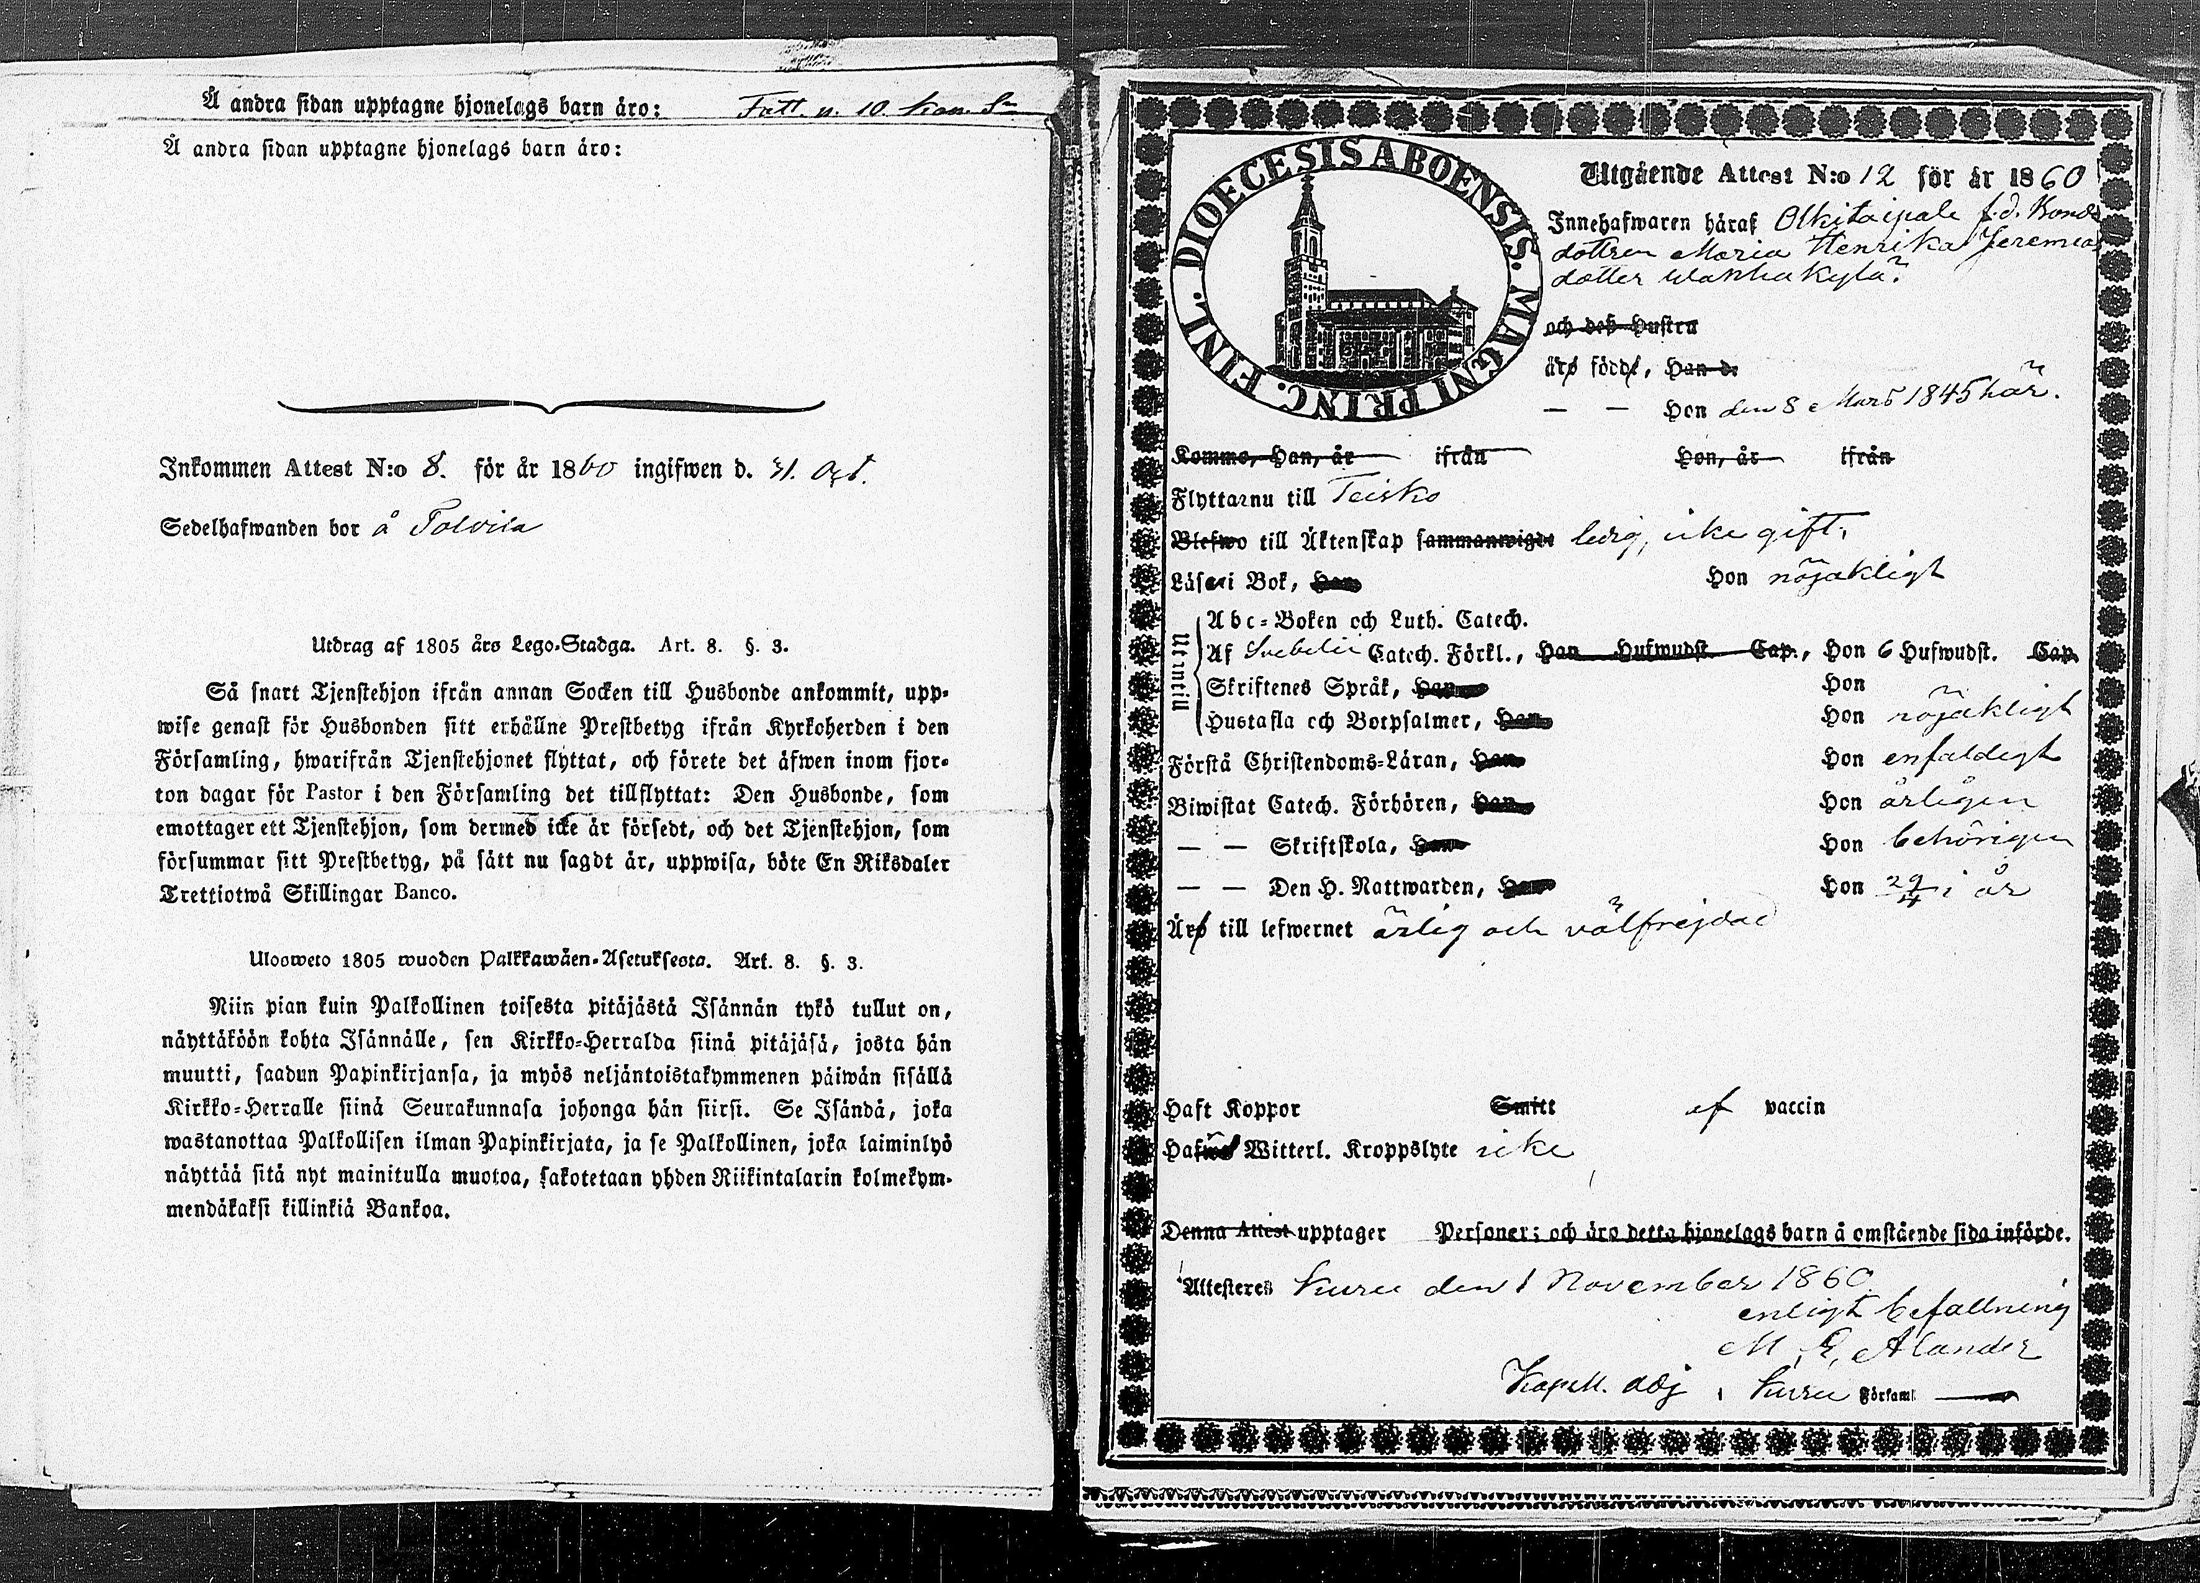 Å andra sidan upptagne hjonelags barn äro:
Å andra sidan upptagne hjonelags barn äro:
Inkommen Attest N:o 8. för år 1860 ingifwen d. 31. Oct.
Sedelhafwanden bor å Tolvila
Utdrag af 1805 års Lego-Stadga. Art. 8. §. 3.
Så snart Tjenstehjon ifrån annan Socken till Husbonde ankommit, upp-
wise genast för Husbonden sitt erhållne Prestbetyg ifrån Kyrkoherden i den
Församling, hwarifrån Tjenstehjonet flyttat, och förete det äfwen inom fjor-
ton dagar för Pastor i den Församling det tillflyttat: Den Husbonde, som
emottager ett Tjenstehjon, som dermed icke är försedt, och det Tjenstehjon, som
försummar sitt Prestbetyg, på sätt nu sagdt är, uppwisa, böte En Riksdaler
Trettiotwå Skillingar Banco.
Uloosweto 1805 wuoden Palkkawäen-Asetuksesta. Art. 8. §. 3.
Niin pian kuin Palkollinen toisesta pitäjästä Isännän tykö tullut on,
näyttäköön kohta Isännälle, sen Kirkko-Herralda siinä pitäjäsä, josta hän
muutti, saadun Papinkirjansa, ja myös neljäntoistakymmenen päiwän sisällä
Kirkko-Herralle siinä Seurakunnasa johonga hän siirsi. Se Isändä, joka
wastanottaa Palkollisen ilman Papinkirjata, ja se Palkollinen, joka laiminlyö
näyttää sitä nyt mainitulla muotoa, sakotetaan yhden Riikintalarin kolmekym-
mendäkaksi killinkiä Bankoa.
DIOECESIS ABOENSIS. MAGNI PRINC. FINL.
Utgående Attest N:o 12 för år 1860
Innehafwaren häraf Olkitaipale f.d. Bonde
dottren Maria Henrika Jeremias
dotter
och deß Hustru
äro födde, Han d.
— — Hon den 8 Mars 1845 här.
Kommo, Han, år ifrån Hon, år ifrån
Flytta nu till Teisko
Blefwo till Äktenskap sammanwigde ledig, icke gift.
Läsa i Bok, Han Hon nöjakligt
Utantill
Abc-Boken och Luth. Catech.
Af Svebelii Catech. Förkl., Han Hufwudst. Cap., Hon 6 Hufwudst. Cap.
Skriftenes Språk, Han Hon
Hustafla och Botpsalmer, Han Hon nöjakligt
Förstå Christendoms-Läran, Han Hon enfaldigt
Biwistat Catech. Förhören, Han Hon årligen
— — Skriftskola, Han Hon behörigen
— — Den H. Nattwarden, Han Hon 29/4 i år
Äro till lefwernet ärlig och välfrejdad
Haft Koppor Smitt af vaccin
Hafwa Witterl. Kroppslyte icke
Denna Attest upptager Personer; och äro detta hjonelags barn å omstående sida införde.
Attesteres Kuru den 1 November 1860
enligt befallning
M. E. Alander
Kapell. adj i Kuru Församl.